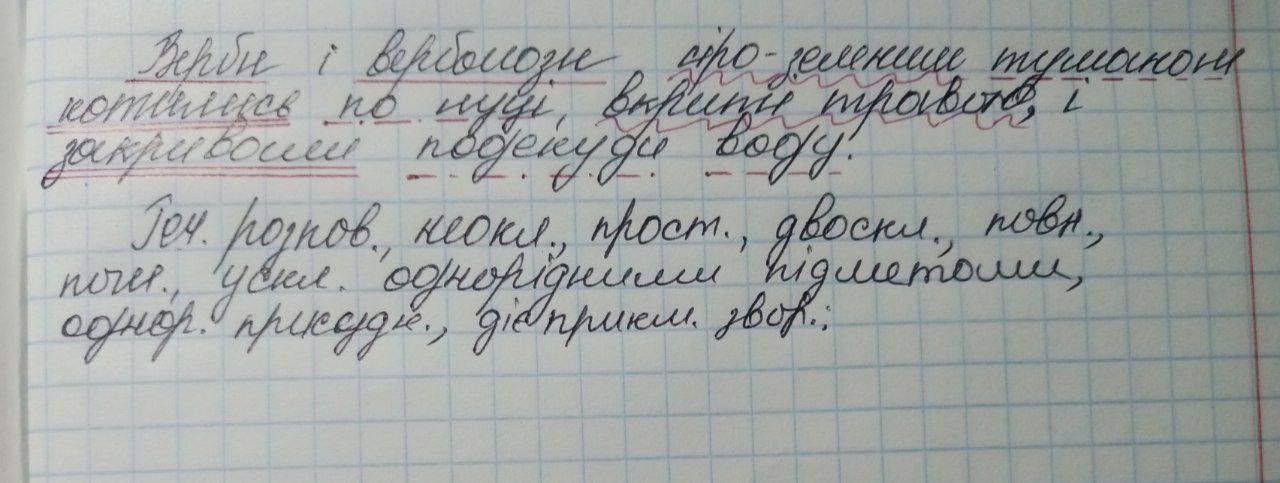 Верби і верболози сіро-зеленим туманом
котились по луці, вкритій травою, і
закривали подекуди воду.
Реч. розпов., неокл., прост., двоскл., повн.,
пош., ускл. однорідними підметами,
однор. присудк., дієприкм. звор.;